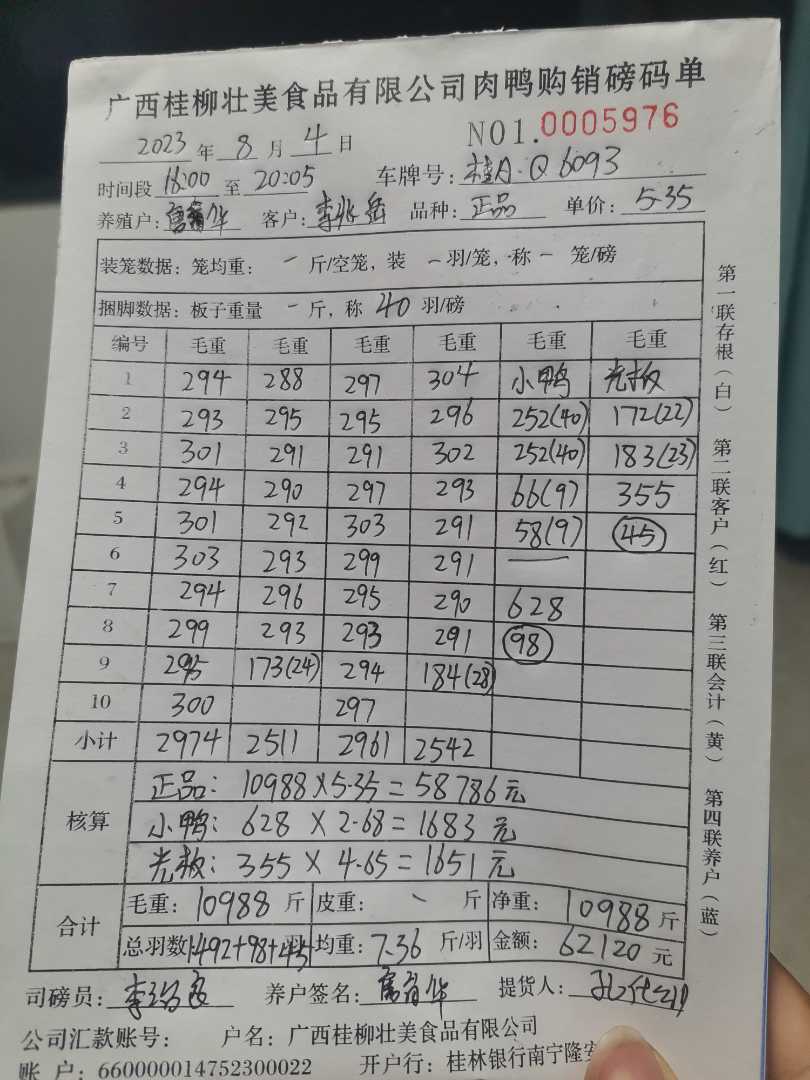 广西桂柳壮美食品有限公司肉鸭购销磅码单
2023 年 8 月 4 日 NO1.0005976
时间段 18:00 至 20:05 车牌号: 桂A·Q6093
养殖户: 客户: 李兆岳 品种: 正品 单价: 5.35
装笼数据: 笼均重: - 斤/空笼, 装 - 羽/笼, 称 - 笼/磅
捆脚数据: 板子重量 - 斤, 称 40 羽/磅
编号 毛重 毛重 毛重 毛重 毛重 毛重
1 294 288 297 304 小鸭 光板
2 293 295 295 296 252(40) 172(22)
3 301 291 291 302 252(40) 183(23)
4 294 290 297 293 66(9) 355
5 301 292 303 291 58(9) 45
6 303 293 299 291 —
7 294 296 295 290 628
8 299 293 293 291 98
9 295 173(24) 294 184(28)
10 300 297
小计 2974 2511 2961 2542
核算
正品: 10988×5.35=58786元
小鸭: 628×2.68=1683元
光板: 355×4.65=1651元
合计
毛重: 10988 斤 皮重: - 斤 净重: 10988 斤
总羽数 1492+98+45 羽 均重: 7.36 斤/羽 金额: 62120 元
司磅员: 养户签名: 提货人:
公司汇款账号: 户名: 广西桂柳壮美食品有限公司
账 户: 660000014752300022 开户行: 桂林银行南宁隆安
第一联存根(白) 第二联客户(红) 第三联会计(黄) 第四联养户(蓝)